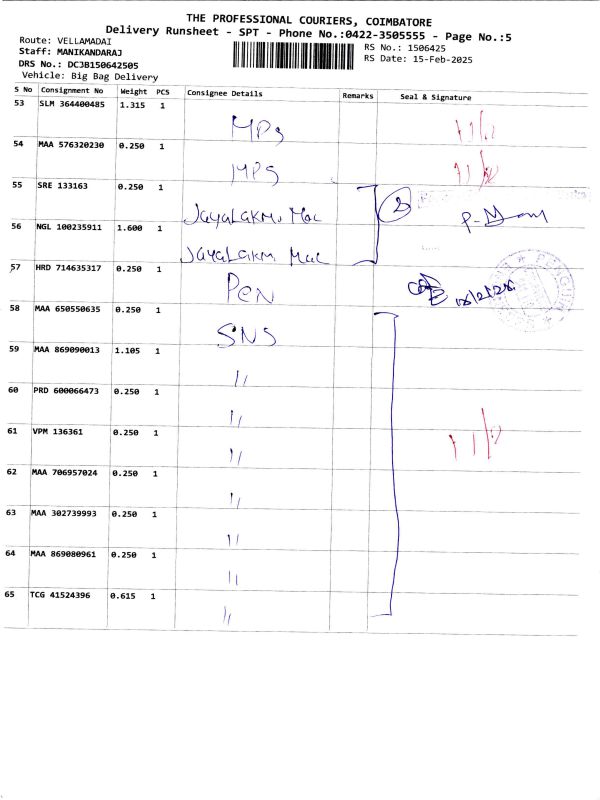 THE PROFESSIONAL COURIERS, COIMBATORE
Delivery Runsheet - SPT - Phone No.:0422-3505555 - Page No.:5
Route: VELLAMADAI
Staff: MANIKANDARAJ
DRS No.: DC3B150642505
Vehicle: Big Bag Delivery
RS No.: 1506425
RS Date: 15-Feb-2025
S No Consignment No Weight PCS Consignee Details Remarks Seal & Signature
53 SLM 364400485 1.315 1 MPS
54 MAA 576320230 0.250 1 MPS
55 SRE 133163 0.250 1 JayaLakmi Mac
56 NGL 100235911 1.600 1 JayaLakmi Mac
57 HRD 714635317 0.250 1 Pen
58 MAA 650550635 0.250 1 SNS
59 MAA 869090013 1.105 1 "
60 PRD 600066473 0.250 1 "
61 VPM 136361 0.250 1 "
62 MAA 706957024 0.250 1 "
63 MAA 302739993 0.250 1 "
64 MAA 869080961 0.250 1 "
65 TCG 41524396 0.615 1 "